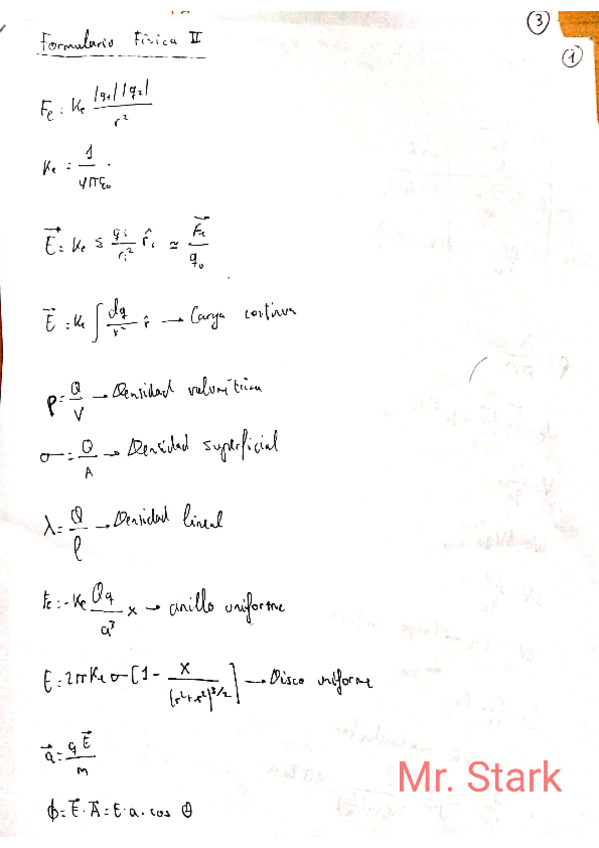 3
1
Formulario Física II
Fe = Ke |q1||q2| / r²
Ke = 1 / 4πε0
E⃗ = Ke Σ qi / ri² r̂i ≃ F⃗e / q0
E⃗ = Ke ∫ dq / r² r̂ → Carga continua
ρ = Q / V → Densidad volumétrica
σ = Q / A → Densidad superficial
λ = Q / l → Densidad lineal
Fe = -Ke Qq / a³ x → anillo uniforme
E = 2πKeσ [1 - x / (r²+x²)^3/2] → Disco uniforme
a⃗ = qE⃗ / m
ϕ = E⃗ · A⃗ = E · a · cos θ
Mr. Stark